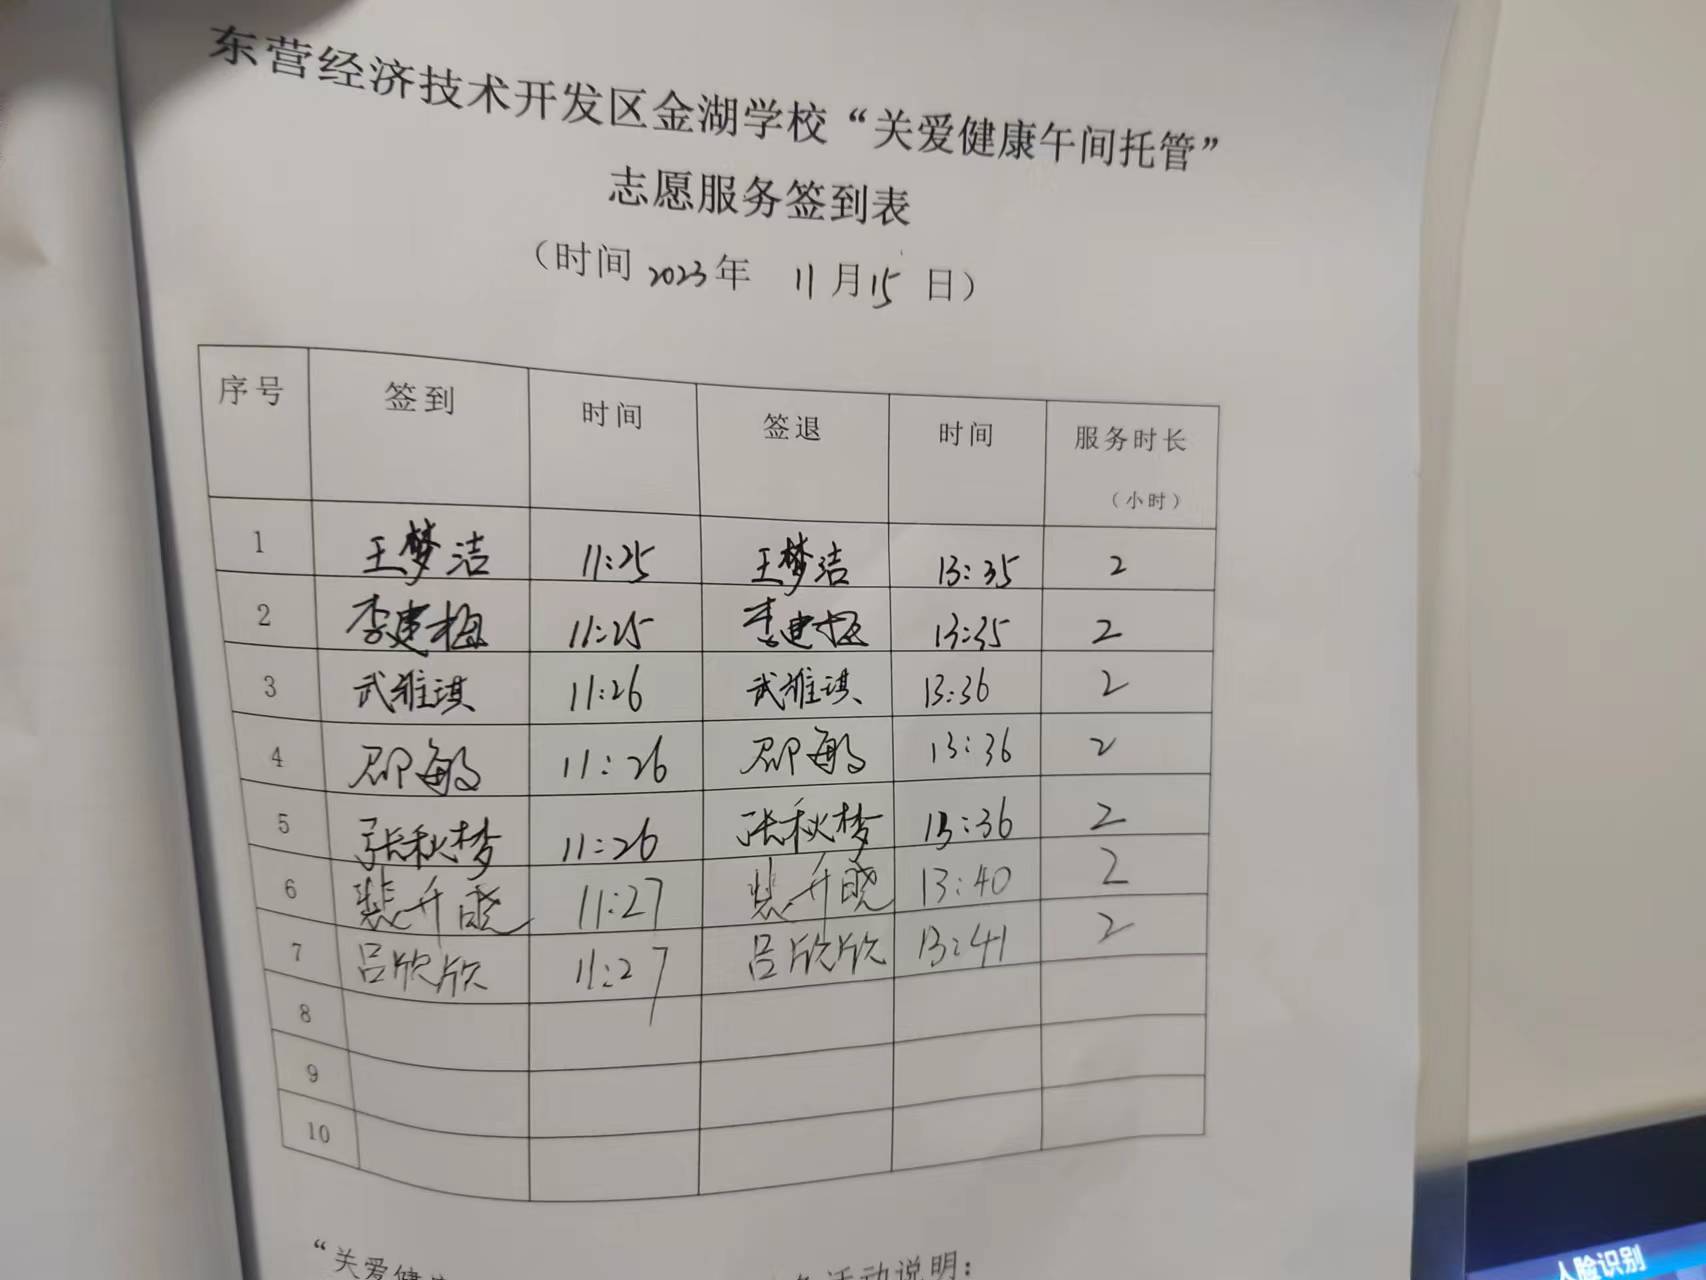 东营经济技术开发区金湖学校“关爱健康午间托管”
志愿服务签到表
（时间 2023年 11月15日）
序号 签到 时间 签退 时间 服务时长
（小时）
1 王梦洁 11:25 王梦洁 13:35 2
2 李建梅 11:25 李建梅 13:35 2
3 武雅琪 11:26 武雅琪 13:36 2
4 邵敏 11:26 邵敏 13:36 2
5 张秋梦 11:26 张秋梦 13:36 2
6 裴升晓 11:27 裴升晓 13:40 2
7 吕欣欣 11:27 吕欣欣 13:41 2
8
9
10
“关爱健 活动说明：
人脸识别